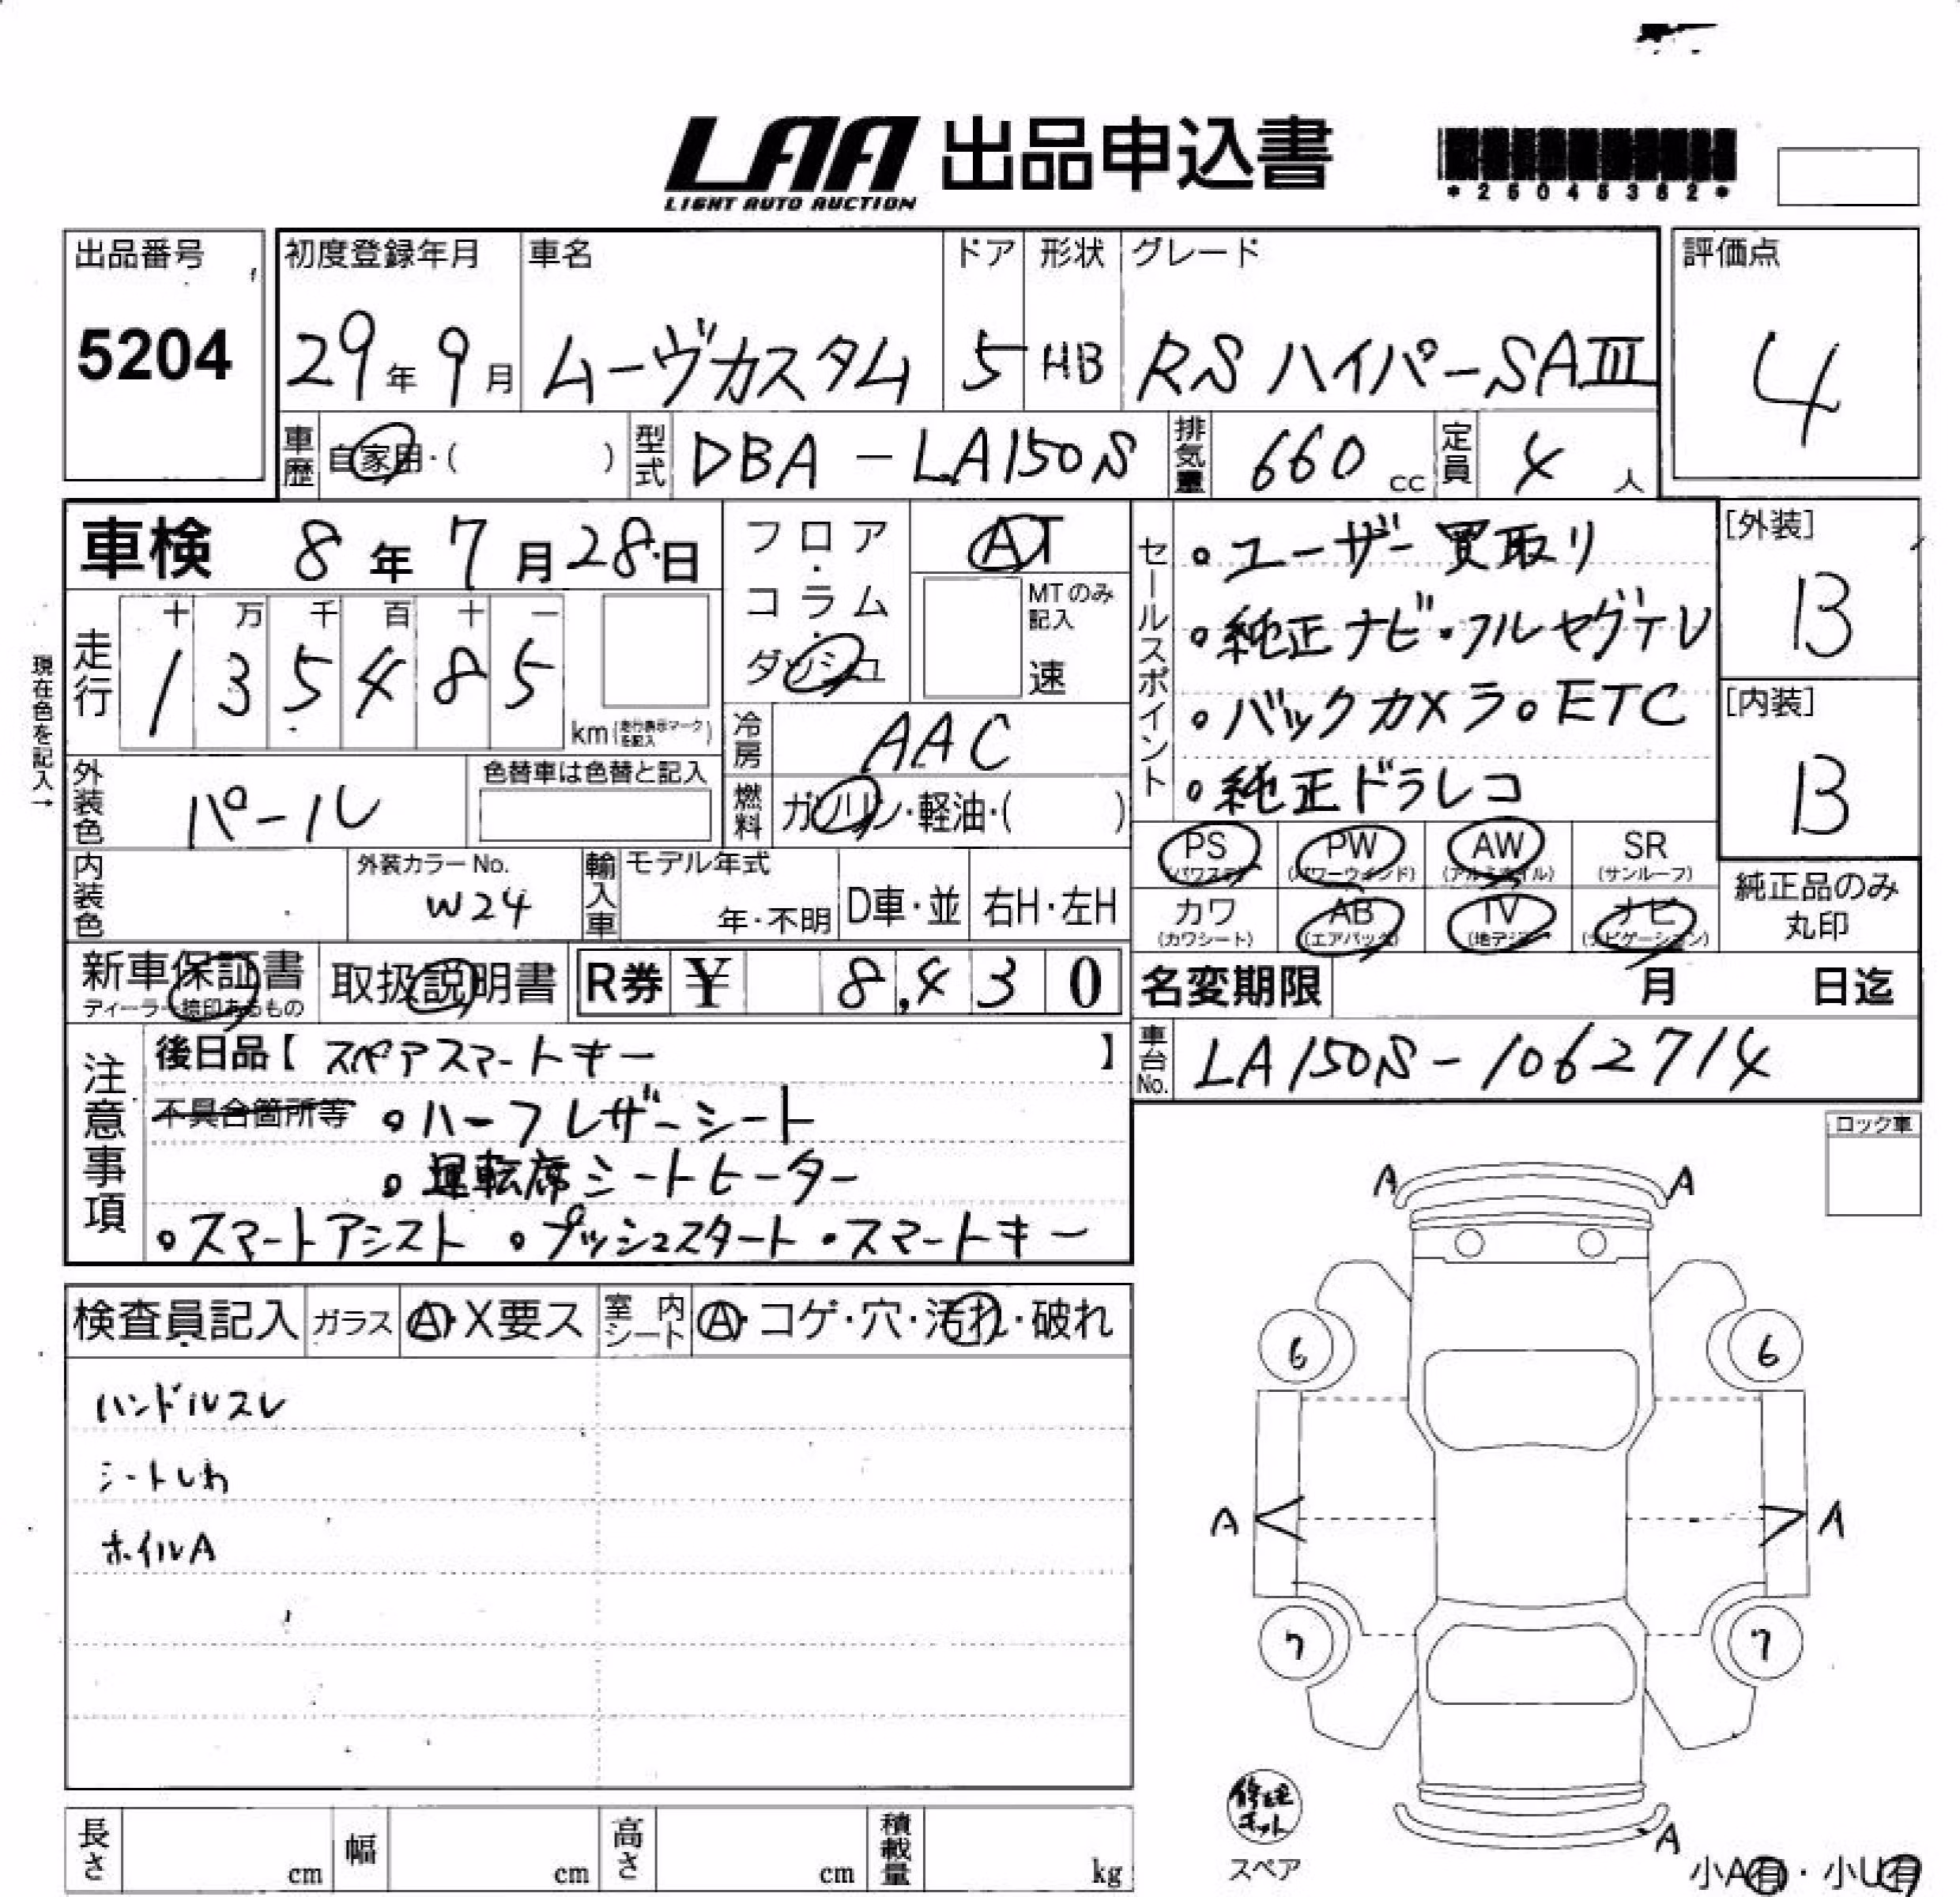 LAA 出品申込書
LIGHT AUTO AUCTION
*26046362*
出品番号
5204
初度登録年月
29年9月
車名
ムーヴカスタム
ドア
5
形状
HB
グレード
RSハイパーSAⅢ
評価点
4
車歴 自家用・( )
型式 DBA-LA150S
排気量 660cc
定員 4人
車検 8年7月28日
フロア・コラム・ダッシュ
AT
MTのみ記入
速
走行
十 万 千 百 十 一
1 3 5 4 8 5
km(走行表示マークを記入)
現在色を記入→
冷房 AAC
燃料 ガソリン・軽油・( )
外装色 パール
色替車は色替と記入
内装色
外装カラーNo.
W24
輸入車
モデル年式
年・不明
D車・並
右H・左H
セールスポイント
。ユーザー買取り
。純正ナビ・フルセグTV
。バックカメラ。ETC
。純正ドラレコ
[外装]
B
[内装]
B
PS (パワステ)
PW (パワーウインド)
AW (アルミホイル)
SR (サンルーフ)
カワ (カワシート)
AB (エアバック)
TV (地デジ)
ナビ (ナビゲーション)
純正品のみ丸印
新車保証書
ディーラー捺印あるもの
取扱説明書
R券 ¥ 8,430
名変期限 月 日迄
車台No. LA150S-1062714
注意事項
後日品【スペアスマートキー】
不具合箇所等 。ハーフレザーシート
。運転席シートヒーター
。スマートアシスト 。プッシュスタート ・スマートキー
ロック車
検査員記入
ガラス A・X要ス
室内シート A・コゲ・穴・汚れ・破れ
ハンドルスレ
シートしわ
ホイルA
A A
6 6
A A
7 7
A
スペア
小A有・小U有
長さ cm
幅 cm
高さ cm
積載量 kg